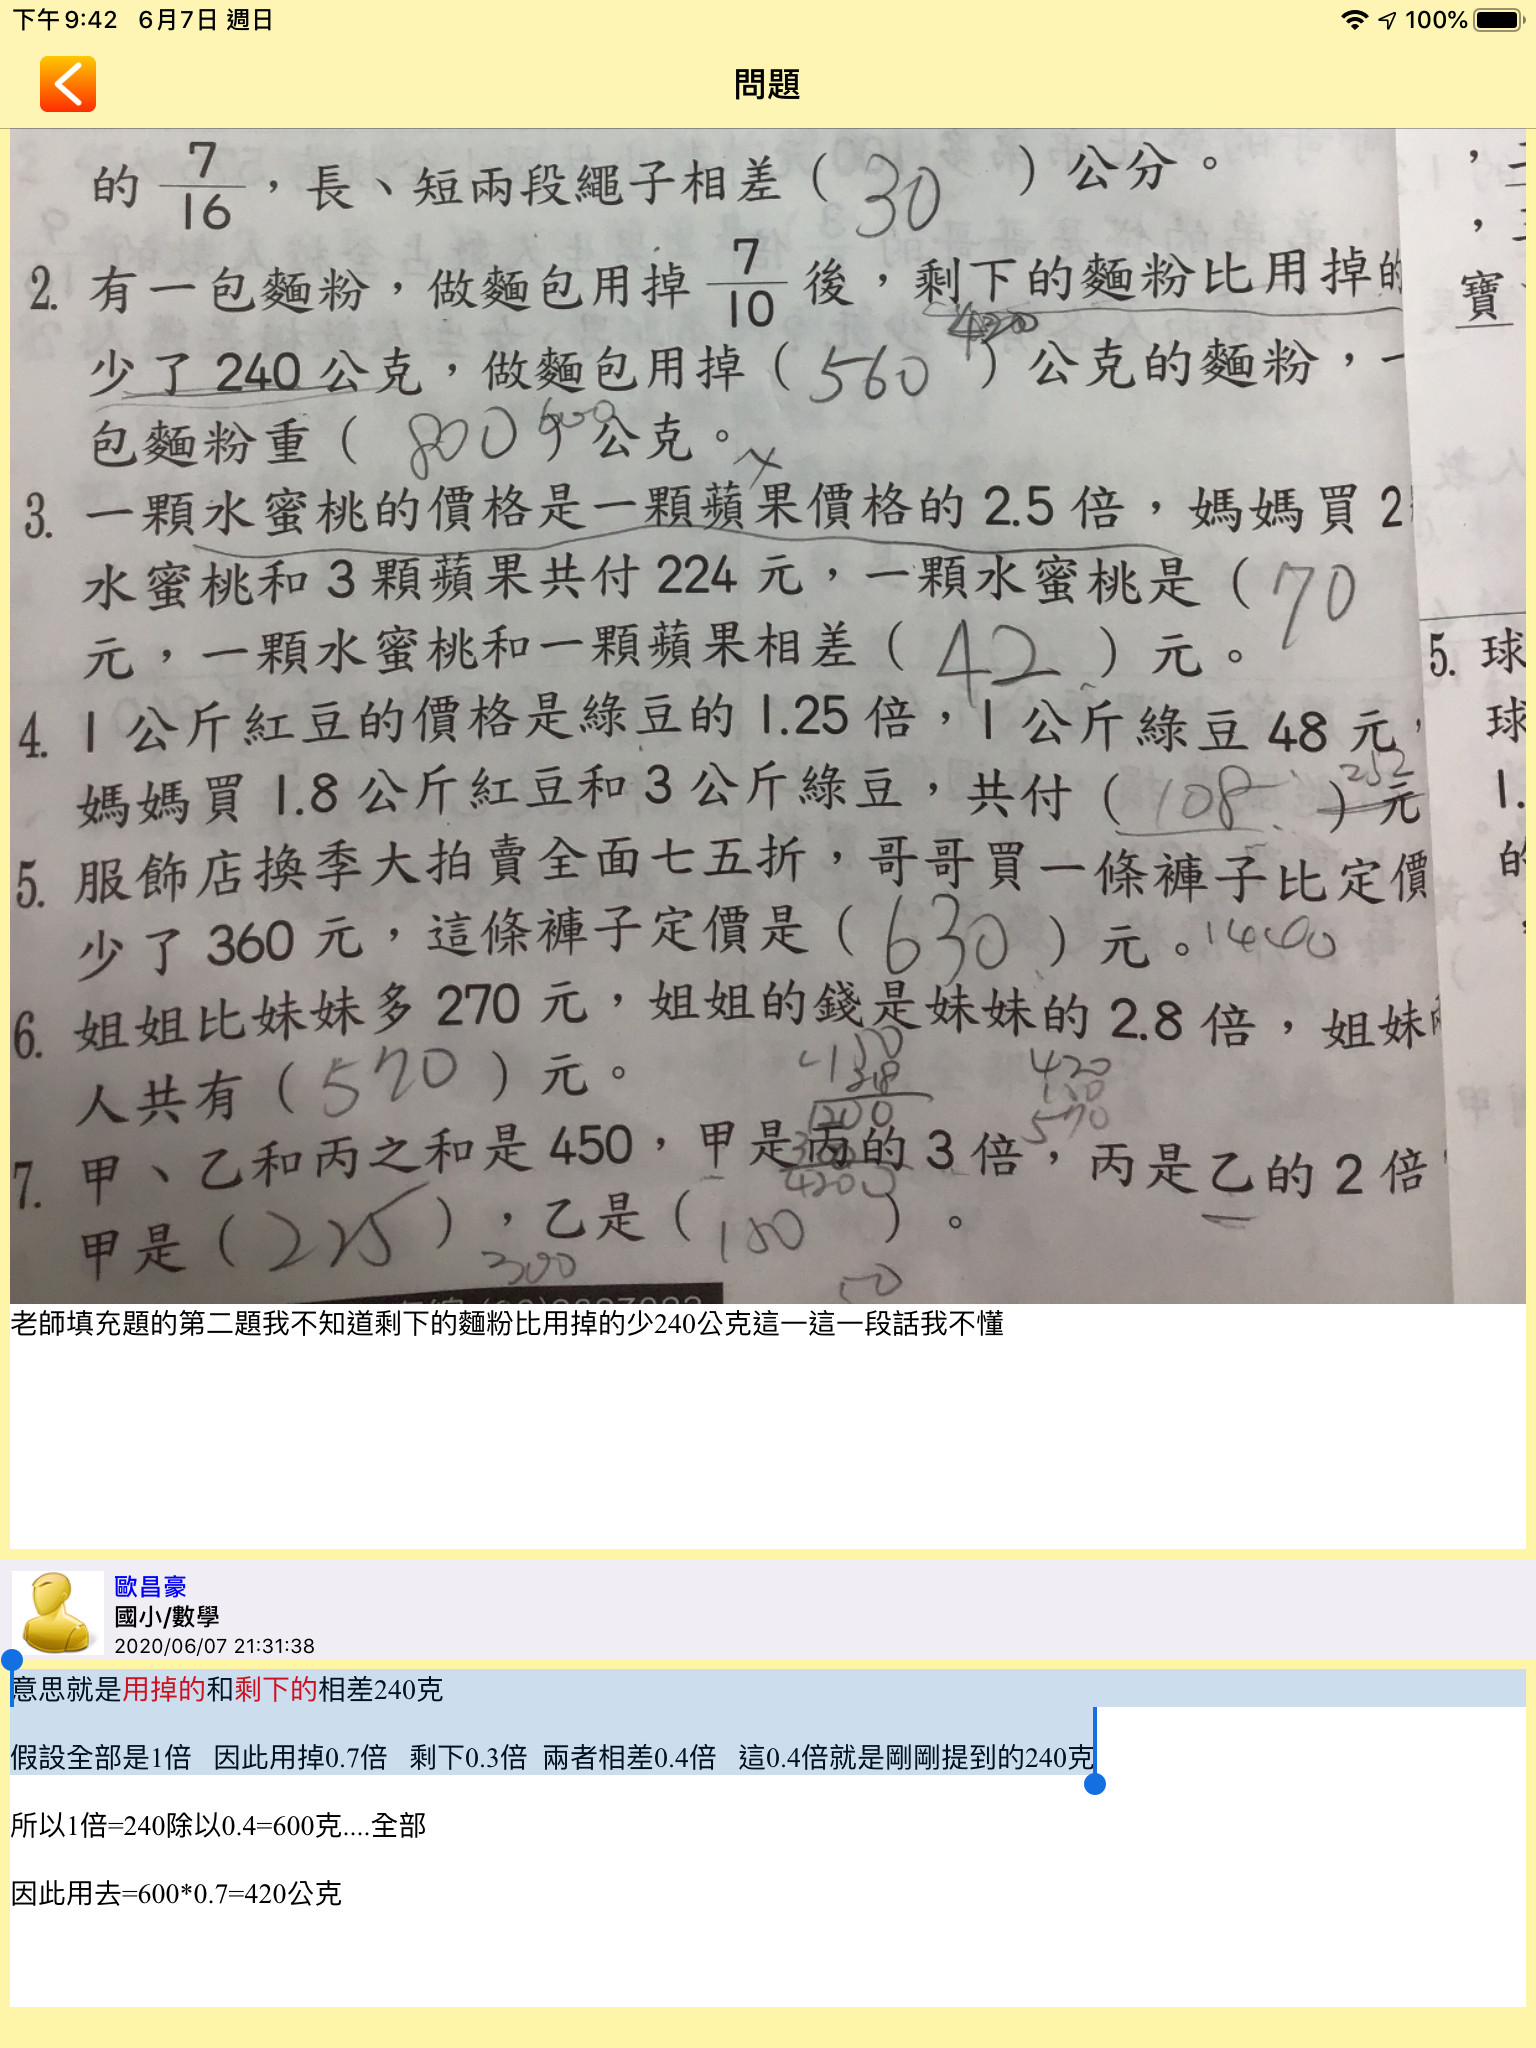 下午9:42 6月7日 週日 100%
問題
的 7/16，長、短兩段繩子相差（ 30 ）公分。
2. 有一包麵粉，做麵包用掉 7/10 後，剩下的麵粉比用掉的
420
少了 240 公克，做麵包用掉（ 560 ）公克的麵粉，一
包麵粉重（ 800 ）公克。
600
3. 一顆水蜜桃的價格是一顆蘋果價格的 2.5 倍，媽媽買 2
水蜜桃和 3 顆蘋果共付 224 元，一顆水蜜桃是（ 70
元，一顆水蜜桃和一顆蘋果相差（ 42 ）元。
4. 1 公斤紅豆的價格是綠豆的 1.25 倍，1 公斤綠豆 48 元，
252
媽媽買 1.8 公斤紅豆和 3 公斤綠豆，共付（ 108 ）元
5. 服飾店換季大拍賣全面七五折，哥哥買一條褲子比定價
少了 360 元，這條褲子定價是（ 630 ）元。1440
6. 姐姐比妹妹多 270 元，姐姐的錢是妹妹的 2.8 倍，姐妹
人共有（ 570 ）元。
150
420
150
570
1200
420
7. 甲、乙和丙之和是 450，甲是丙的 3 倍，丙是乙的 2 倍
甲是（ 225 ），乙是（ 150 ）。
300
50
，
，
寶
5. 球
球
1.
的
老師填充題的第二題我不知道剩下的麵粉比用掉的少240公克這一這一段話我不懂
歐昌豪
國小/數學
2020/06/07 21:31:38
意思就是用掉的和剩下的相差240克
假設全部是1倍 因此用掉0.7倍 剩下0.3倍 兩者相差0.4倍 這0.4倍就是剛剛提到的240克
所以1倍=240除以0.4=600克....全部
因此用去=600*0.7=420公克